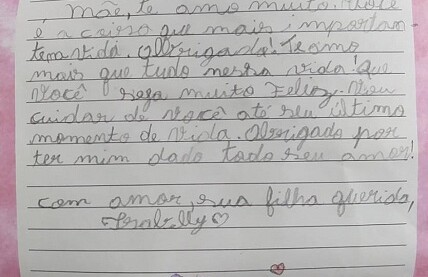 Mãe, te amo muito. Você
é a coisa que mais importan
tem vida. Obrigada! Te amo
mais que tudo nessa vida! Que
você seja muito Feliz. Vou
cuidar de você até seu último
momento de vida. Obrigado por
ter mim dado todo seu amor!
com amor, sua filha querida,